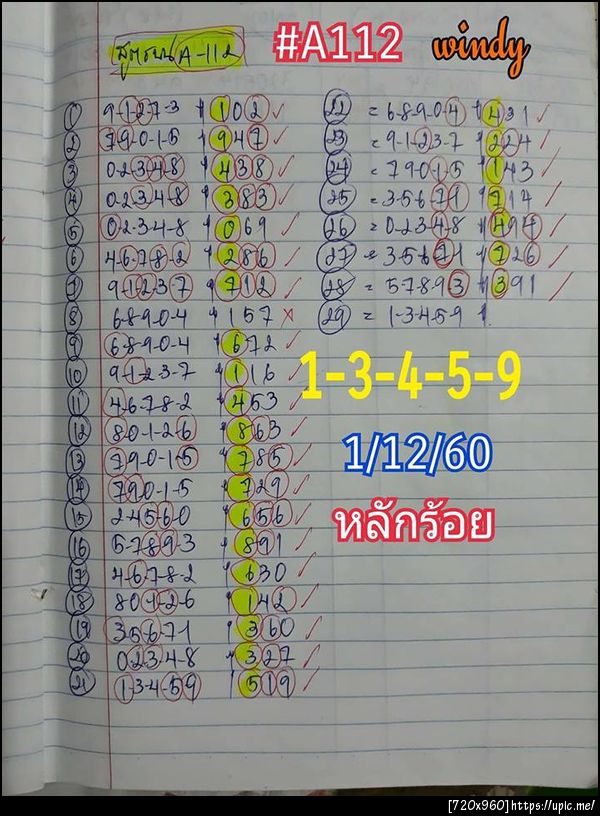 สูตรบน A-112
#A112 windy
1 9-1-2-7-3 102 ✓
2 7-9-0-1-5 947 ✓
3 0-2-3-4-8 438 ✓
4 0-2-3-4-8 383 ✓
5 0-2-3-4-8 069 ✓
6 4-6-7-8-2 286 ✓
7 9-1-2-3-7 712 ✓
8 6-8-9-0-4 157 ×
9 6-8-9-0-4 672 ✓
10 9-1-2-3-7 116 ✓
11 4-6-7-8-2 453 ✓
12 8-0-1-2-6 863 ✓
13 7-9-0-1-5 785 ✓
14 7-9-0-1-5 729 ✓
15 2-4-5-6-0 656 ✓
16 5-7-8-9-3 891 ✓
17 4-6-7-8-2 630 ✓
18 8-0-1-2-6 142 ✓
19 3-5-6-7-1 360 ✓
20 0-2-3-4-8 327 ✓
21 1-3-4-5-9 519 ✓
22 = 6-8-9-0-4 431 ✓
23 = 9-1-2-3-7 224 ✓
24 = 7-9-0-1-5 143 ✓
25 = 3-5-6-7-1 714 ✓
26 = 0-2-3-4-8 494 ✓
27 = 3-5-6-7-1 726 ✓
28 = 5-7-8-9-3 391 ✓
29 = 1-3-4-5-9
1-3-4-5-9
1/12/60
หลักร้อย
[720x960] https://upic.me/